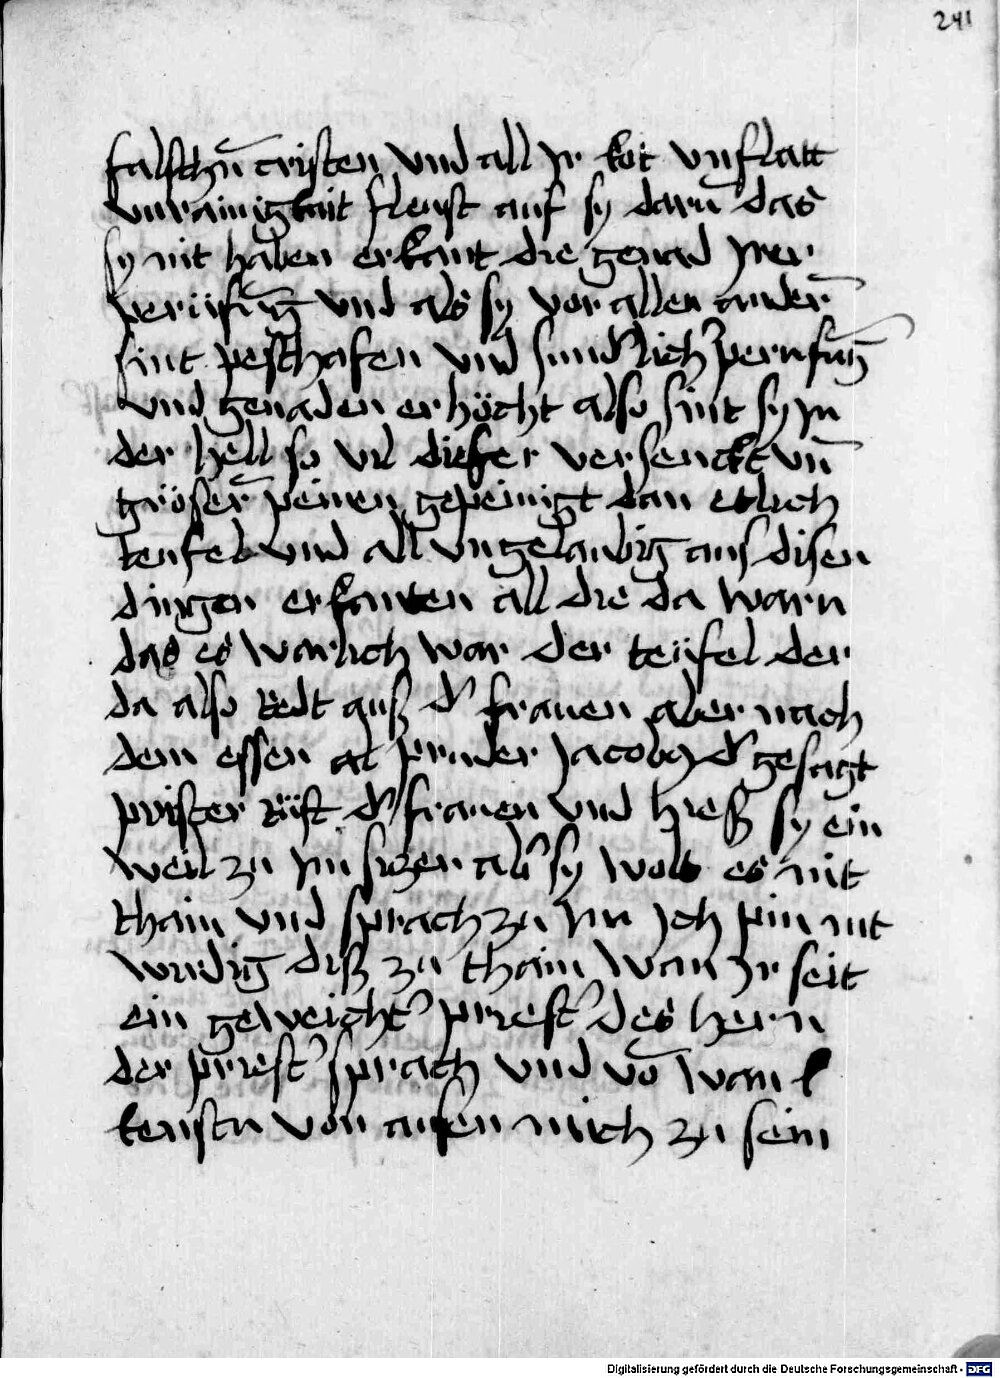 241
falschn̄ cristen vnd all jr kot vnflatt
vnrainigkait fleust auf sy darū das
sy nit haben erkant die genad jrer
perüfūg vnd als sy vor allen andern̄
sint peschafen vnd sund'lich' peruefūg
vnd genaden erhöcht also sint sy jn
der hell so vil diefer versenckt vn̄
grösern̄ peinen gepeinigt dan etlich
teufel vnd all vngelaubig aus disen
dingen erkanten all die da warn
das es warlich war der teüfel der
da also redt auß d' frauen aber nach
dem essen pruder jacobus d' gesagt
prister rüft d' frauen vnd hieß sy ein
weil zu jm siczen ab' sy wolt es nit
thain vnd sprach zu jm jch pin nit
wirdig diß zu thain wan jr seit
ein geweicht' priest' des hern
der priest' sprach vnd vō wan
kenstu von ausen mich zu sein
Digitalisierung gefördert durch die Deutsche Forschungsgemeinschaft - DFG